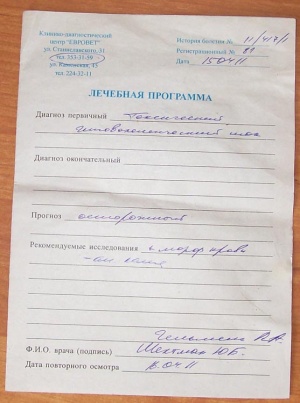 Клинико-диагностический
центр "ЕВРОВЕТ"
ул. Станиславского, 31
тел. 253-31-59
тел. 224-33-11
История болезни №
Регистрационный №
Дата 150411
ЛЕЧЕБНАЯ ПРОГРАММА
Диагноз первичный Токсический,
гиповолемический шок
Диагноз окончательный
Прогноз осторожный
Рекомендуемые исследования крови
Ф.И.О. врача (подпись)
Дата повторного осмотра